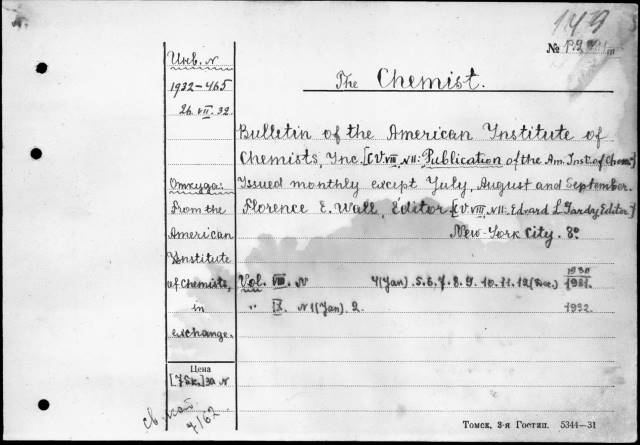 149
№
Инв. N
1932-465
26.VII.32.
The Chemist.
Bulletin of the American Institute of
Chemists, Inc. [с V. VIII, N11: Publication of the Am. Inst. of Chem.]
Issued monthly except July, August and September.
Florence E. Wall, Editor. [V. VIII, N11: Editor.]
New-York City. 8°
Откуда:
From the
American
Institute
of Chemists,
in
exchange.
Vol. VIII. N 4(Jan). 5. 6. 7. 8. 9. 10. 11. 12(Dec.) 1930 1931.
" IX. N 1(Jan). 2. 1932.
Цена
за N
7/62
Томск, 3-я Гостип. 5344—31